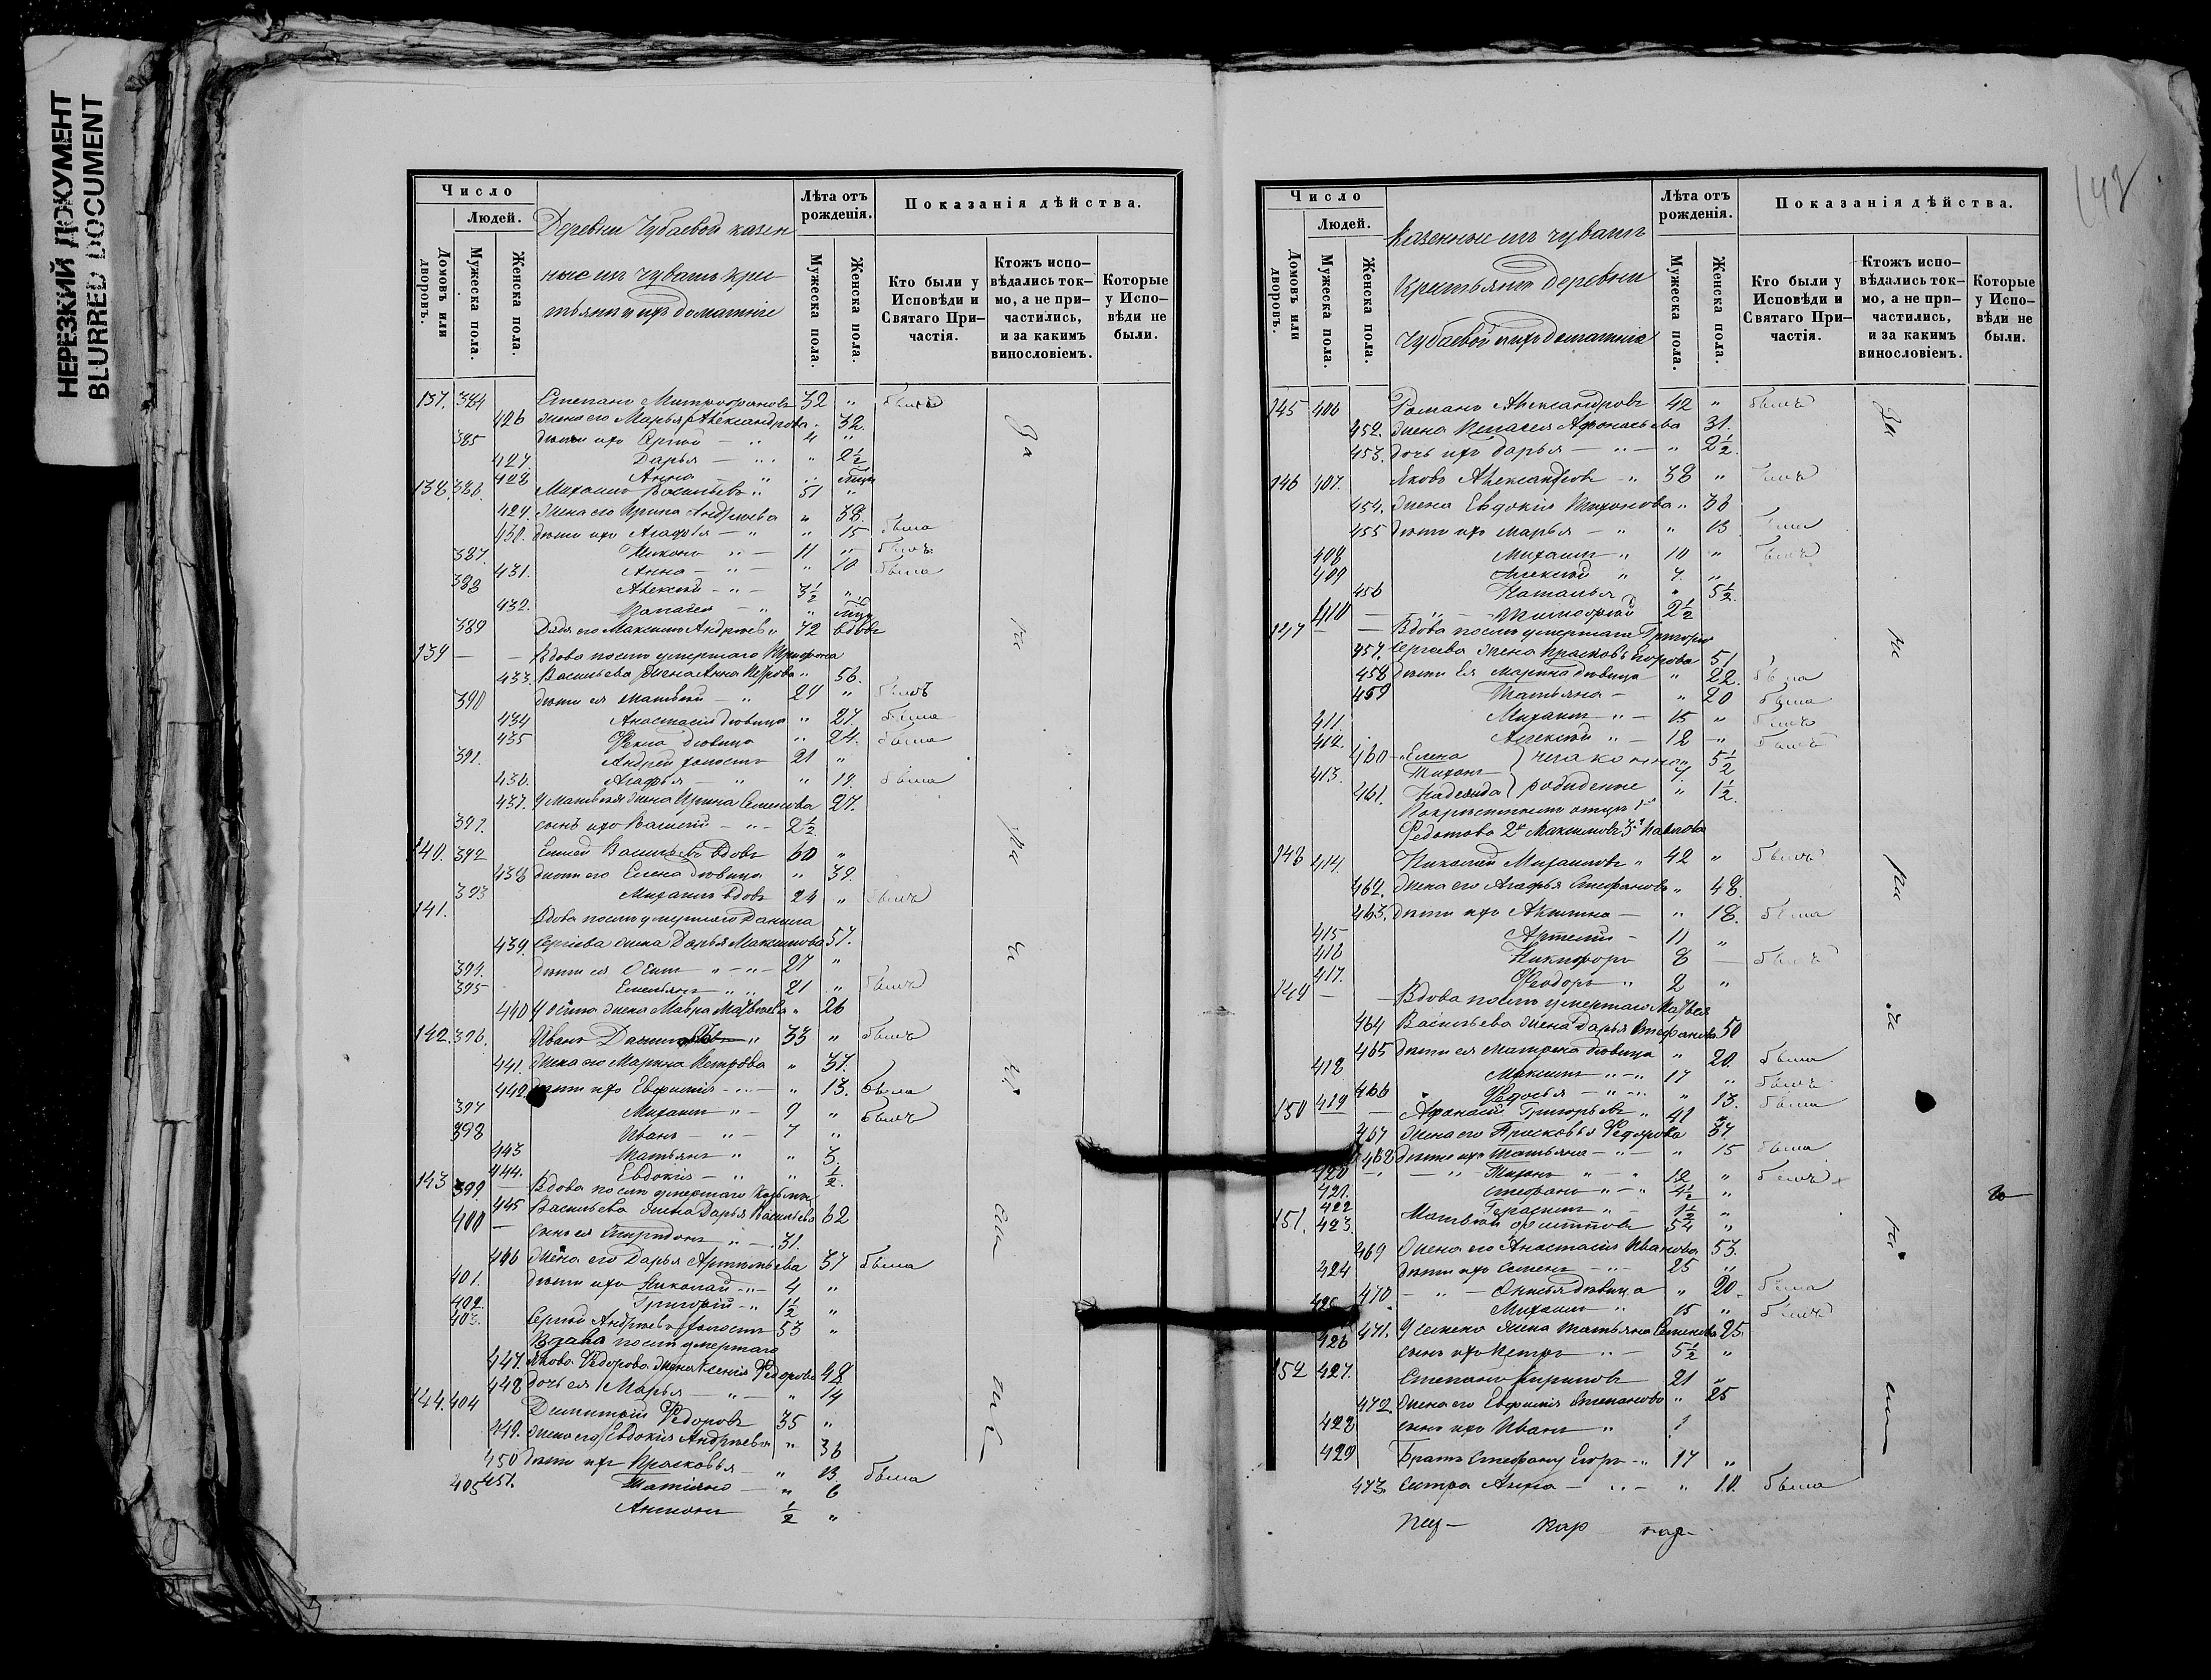 НЕРЕЗКИЙ ДОКУМЕНТ
BLURRED DOCUMENT
Число
Людей.
Домовъ или дворовъ.
Мужеска пола.
Женска пола.
Деревни Чубаевой казен
ные изъ чувашъ кре
стьяне и ихъ домашніе
Лѣта отъ рожденія.
Мужеска пола.
Женска пола.
Показанія дѣйства.
Кто были у Исповѣди и Святаго При-частія.
Ктожъ испо-вѣдались ток-мо, а не при-частились, и за какимъ винословіемъ.
Которые у Испо-вѣди не были.
137. 384 Степанъ Митрофановъ 32 " былъ
426 жена его Марья Александрова " 32.
385 дѣти ихъ Сергѣй — " 4 "
427. Дарья — " " 2½
428 Анна — "
138. 386. Михаилъ Васильевъ " 51 "
429. Жена его Ирина Андреева " 38.
430. дѣти ихъ Агафья — " " 15 была
387. Никонъ " — 11 " былъ
431. Анна — " — " 10 была
388 Алексѣй — " — 3½ "
432. Пелагея — " "
389 Дядя его Максимъ Андреевъ " 72 вдовъ
139 — — Вдова послѣ умершаго Трифона
433. Васильева Жена Анна Петрова " 56.
390 дѣти ея Матвѣй — " 24 " былъ
434 Анастасія дѣвица " 27. была
435 Фекла дѣвица " 24. была
391. Андрей холостъ 21 "
436. Агафья — " " 19. была
437. У Матвѣя жена Ирина Семенова 27.
391. сынъ ихъ Василій — " — 2½
140. 392 Елисей Васильевъ вдовъ 60 "
438 дѣти его Елена дѣвица " 39.
393 Михаилъ вдовъ 24 " былъ
141. Вдова послѣ умершаго Данила
439. Сергѣева жена Дарья Максимова 57.
394. дѣти ея Осипъ " — " — 27 "
395 Емельянъ " " 21 " былъ
440 У Осипа жена Мавра Матвеева " 26
142. 396. Иванъ " 33 " былъ
441. Жена его Марина Петрова " 37.
442 дѣти ихъ Евфимія — " — " 13. была
397 Михаилъ " — 9 " былъ
398 Иванъ — " — 7 "
443 Татьяна " " 3.
444. Евдокія — " " ½.
143 399. — Вдова послѣ умершаго Козьмы
445 Васильева жена Дарья Васильева 62
400 — сынъ ея Спиридонъ " — 31.
446 Жена его Дарья Артемьева 37 была
401. дѣти ихъ Николай — " — 4 "
402. Григорій — " 1½ "
403. Сергѣй Андреевъ холостъ 53 "
Вдова послѣ умершаго
447. Якова Федорова жена Ксенія Федорова 48
448 дочь ея Марья — " — " 14
144. 404 Димитрій Федоровъ 35 "
449. жена его Евдокія Андреева " 36
450 дѣти ихъ Прасковья — " 13. была
405 451. Татіяна — " 6
Антонъ ½ "
За
142
Число
Людей.
Домовъ или дворовъ.
Мужеска пола.
Женска пола.
Казенные изъ чувашъ
Крестьяна деревни
Чубаевой и ихъ домашніе
Лѣта отъ рожденія.
Мужеска пола.
Женска пола.
Показанія дѣйства.
Кто были у Исповѣди и Святаго При-частія.
Ктожъ испо-вѣдались ток-мо, а не при-частились, и за какимъ винословіемъ.
Которые у Испо-вѣди не были.
145 406 Романъ Александровъ 42 " былъ
452. Жена Пелагея Афонасьева 31.
453. дочь ихъ Дарья — " — " 2½.
146 407. Яковъ Александровъ — " 38 " былъ
454. Жена Евдокія Тихонова " 36
455 дѣти ихъ Марья — " " 13 была
408 Михаилъ " 10 " былъ
409 Алексѣй " 7. "
456 Наталья " 5½.
410 — " — Тимофѣй 2½
147 — — Вдова послѣ умершаго Григорія
457. Сергѣева жена Прасковья Егорова 51
458 дѣти Ея Марина дѣвица " 22. была
459 Татьяна — " 20 была
411. Михаилъ " — 15 " былъ
412. Алексѣй " — 12 " былъ
460 Елена } незаконно " 5½
413. Тихонъ 7.
461. Надежда } рожденные " 1½.
Федотова 2й Максимовъ 3я Павлова
148 414. Николай Михаиловъ " 42 " былъ
462. Жена его Агафья Стефанова " 48.
463. дѣти ихъ Акилина — " 18. была
415 Артемій — 11 "
416 Никифоръ 8 — былъ
417. Феодоръ " 2 "
149 — — Вдова послѣ умершаго Матвея
464 Васильева Жена Дарья Стефанова 50
465 дѣти ея Матрена дѣвица " 20. была
418 Максимъ " — " 17 " былъ
466 Федосья — " — " 13. была
150 419 — Афанасій Григорьевъ " 41 "
467 Жена его Прасковья Федорова 37.
468 дѣти ихъ Татьяна — " — " 15 была
420 — " — Тихонъ " — " 12 " былъ
421. Стефанъ " — " 4½ "
422 Герасимъ " — 1½ "
151. 423. Матвѣй Филипповъ 54 "
469 Жена его Анастасія Иванова 53.
424 дѣти ихъ Семенъ — " — 25 "
470 — " — дѣвица " 20. была
425 Михаилъ " 15 " былъ
471. У Семена Жена Татьяна Семенова 25.
426 сынъ ихъ Петръ " — 5½ "
152 427. Степанъ Кириловъ 21 "
472. Жена его Евфимія Степанова " 25
428 сынъ ихъ Иванъ " 1
429 Братъ Стефану Егоръ — " 17 "
473. Сестра Анна — " — " 10. была
За